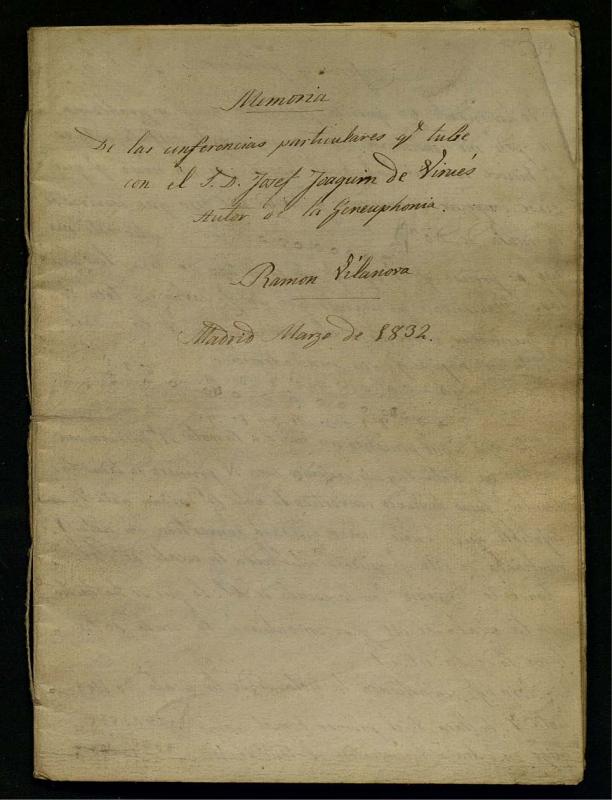 Memoria
De las conferencias particulares qe tube
con el S. D. Josef Joaquin de Virués
Autor de la Geneuphonia.
Ramon Vilanova
Madrid Marzo de 1832.